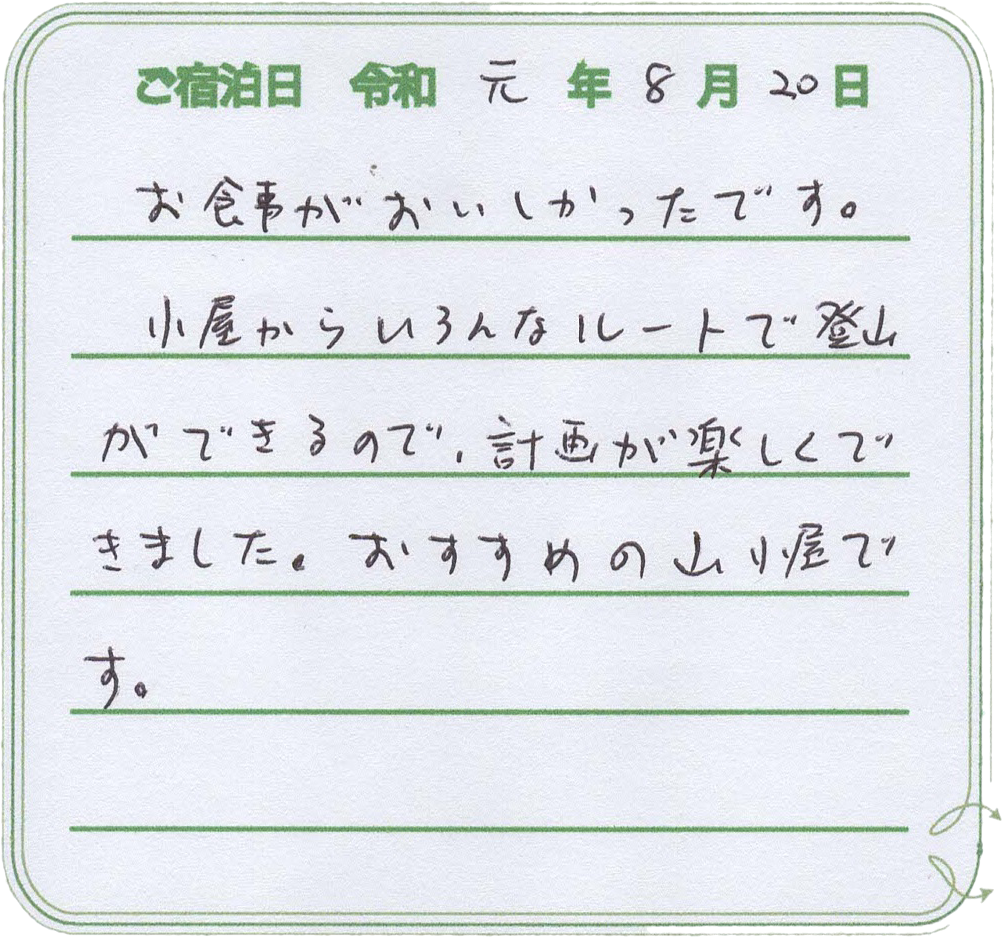 ご宿泊日 令和 元 年 8 月 20 日
お食事がおいしかったです。
小屋からいろんなルートで登山
ができるので、計画が楽しくで
きました。おすすめの山小屋で
す。